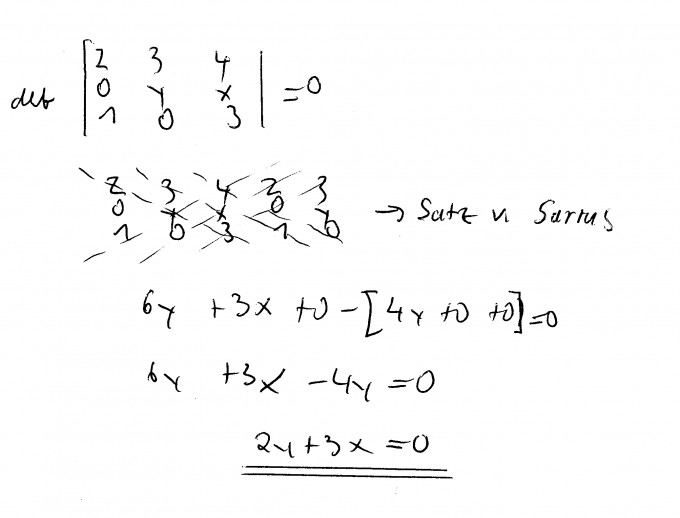 det | 2 3 4 |
| 0 y x | =0
| 1 0 3 |
2 3 4 2 3
0 y x 0 y → Satz v Sarrus
1 0 3 1 0
6y +3x +0 -[4y +0 +0]=0
6y +3x -4y =0
2y+3x =0